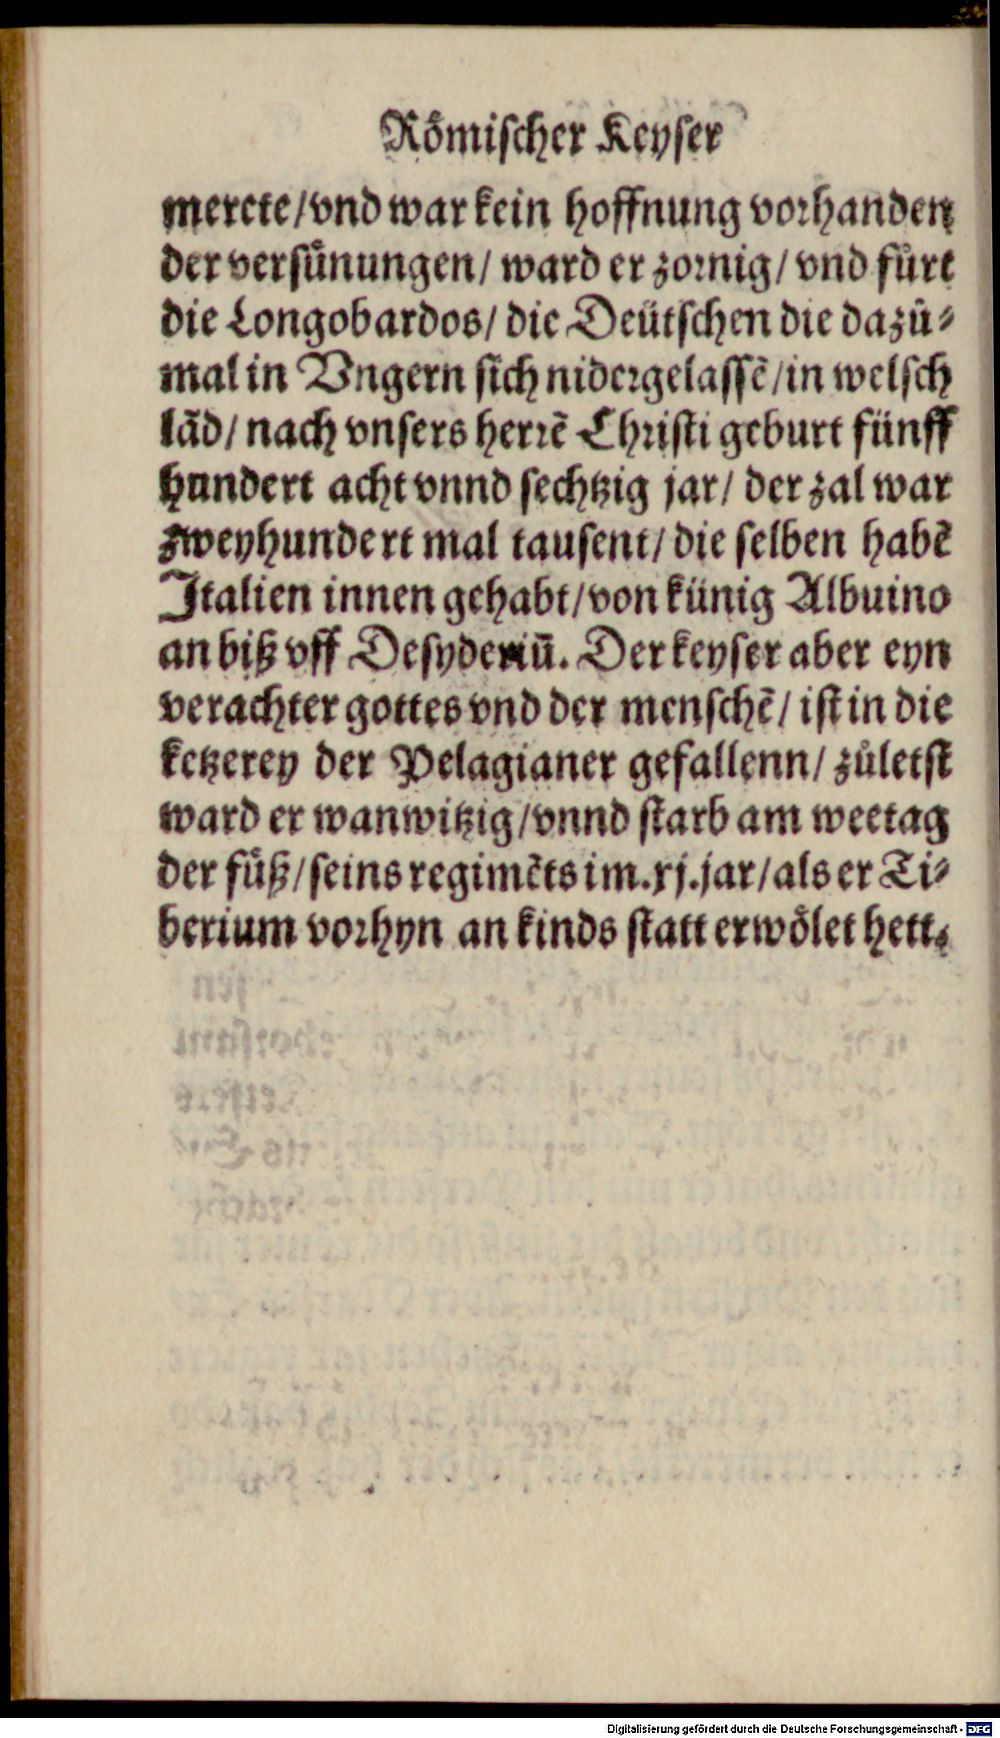 Roͤmischer Keyser
merckte/vnd war kein hoffnung vorhanden
der versuͤnungen/ ward er zornig/ vnd fuͤrt
die Longobardos/ die Deütschen die dazuͦ-
mal in Vngern sich nidergelassẽ/in welsch
lãd/ nach vnsers herrẽ Christi geburt fünff
hundert acht vnnd sechtzig jar/ der zal war
zweyhundert mal tausent/ die selben habẽ
Italien innen gehabt/von künig Albuino
an biß vff Desyderiũ. Der keyser aber eyn
verachter gottes vnd der menschẽ/ ist in die
ketzerey der Pelagianer gefallenn/ zuͦletst
ward er wanwitzig/vnnd starb am weetag
der fuͤß/seins regimẽts im.xj.jar/als er Ti-
berium vorhyn an kinds statt erwoͤlet hett.
Digitalisierung gefördert durch die Deutsche Forschungsgemeinschaft - DFG